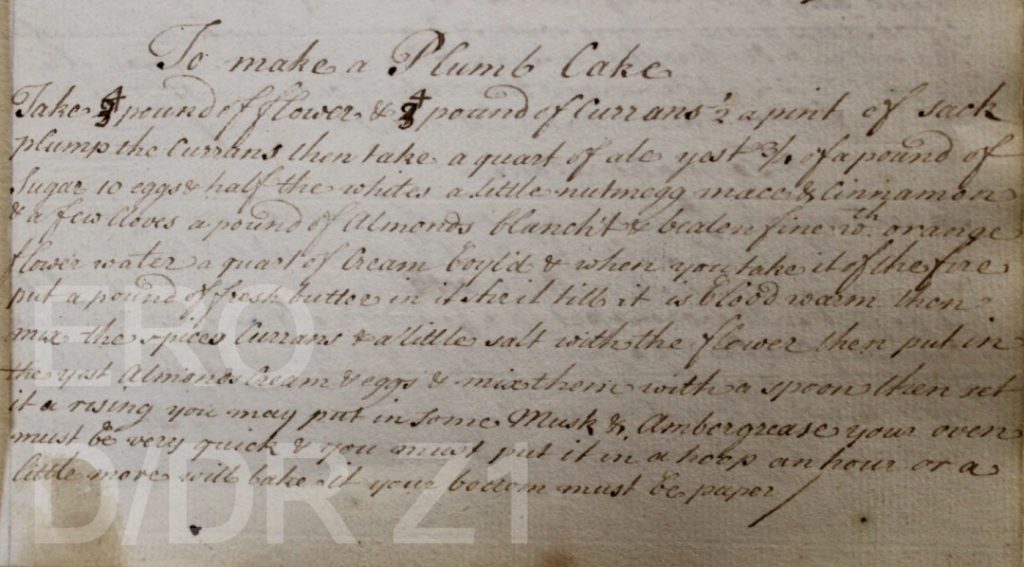 To make a Plumb Cake
Take 4 pound of flower & 4 pound of Currans ½ a pint of sack
plump the Currans then take a quart of ale yest ¾ of a pound of
Sugar 10 eggs & half the whites a little nutmegg mace & Cinnamon
& a few Cloves a pound of Almonds blanch't & beaten fine wth. orange
flower water a quart of Cream boyl'd & when you take it of the fire
put a pound of fresh butter in it stir it till it is blood warm then
mix the spices Currans & a little salt with the flower then put in
the yest Almonds Cream & eggs & mix them with a spoon then set
it a rising you may put in some Musk & Ambergrease your oven
must be very quick & you must put it in a hoop an hour or a
little more will bake it your bottom must be paper
ERO
D/DR Z1